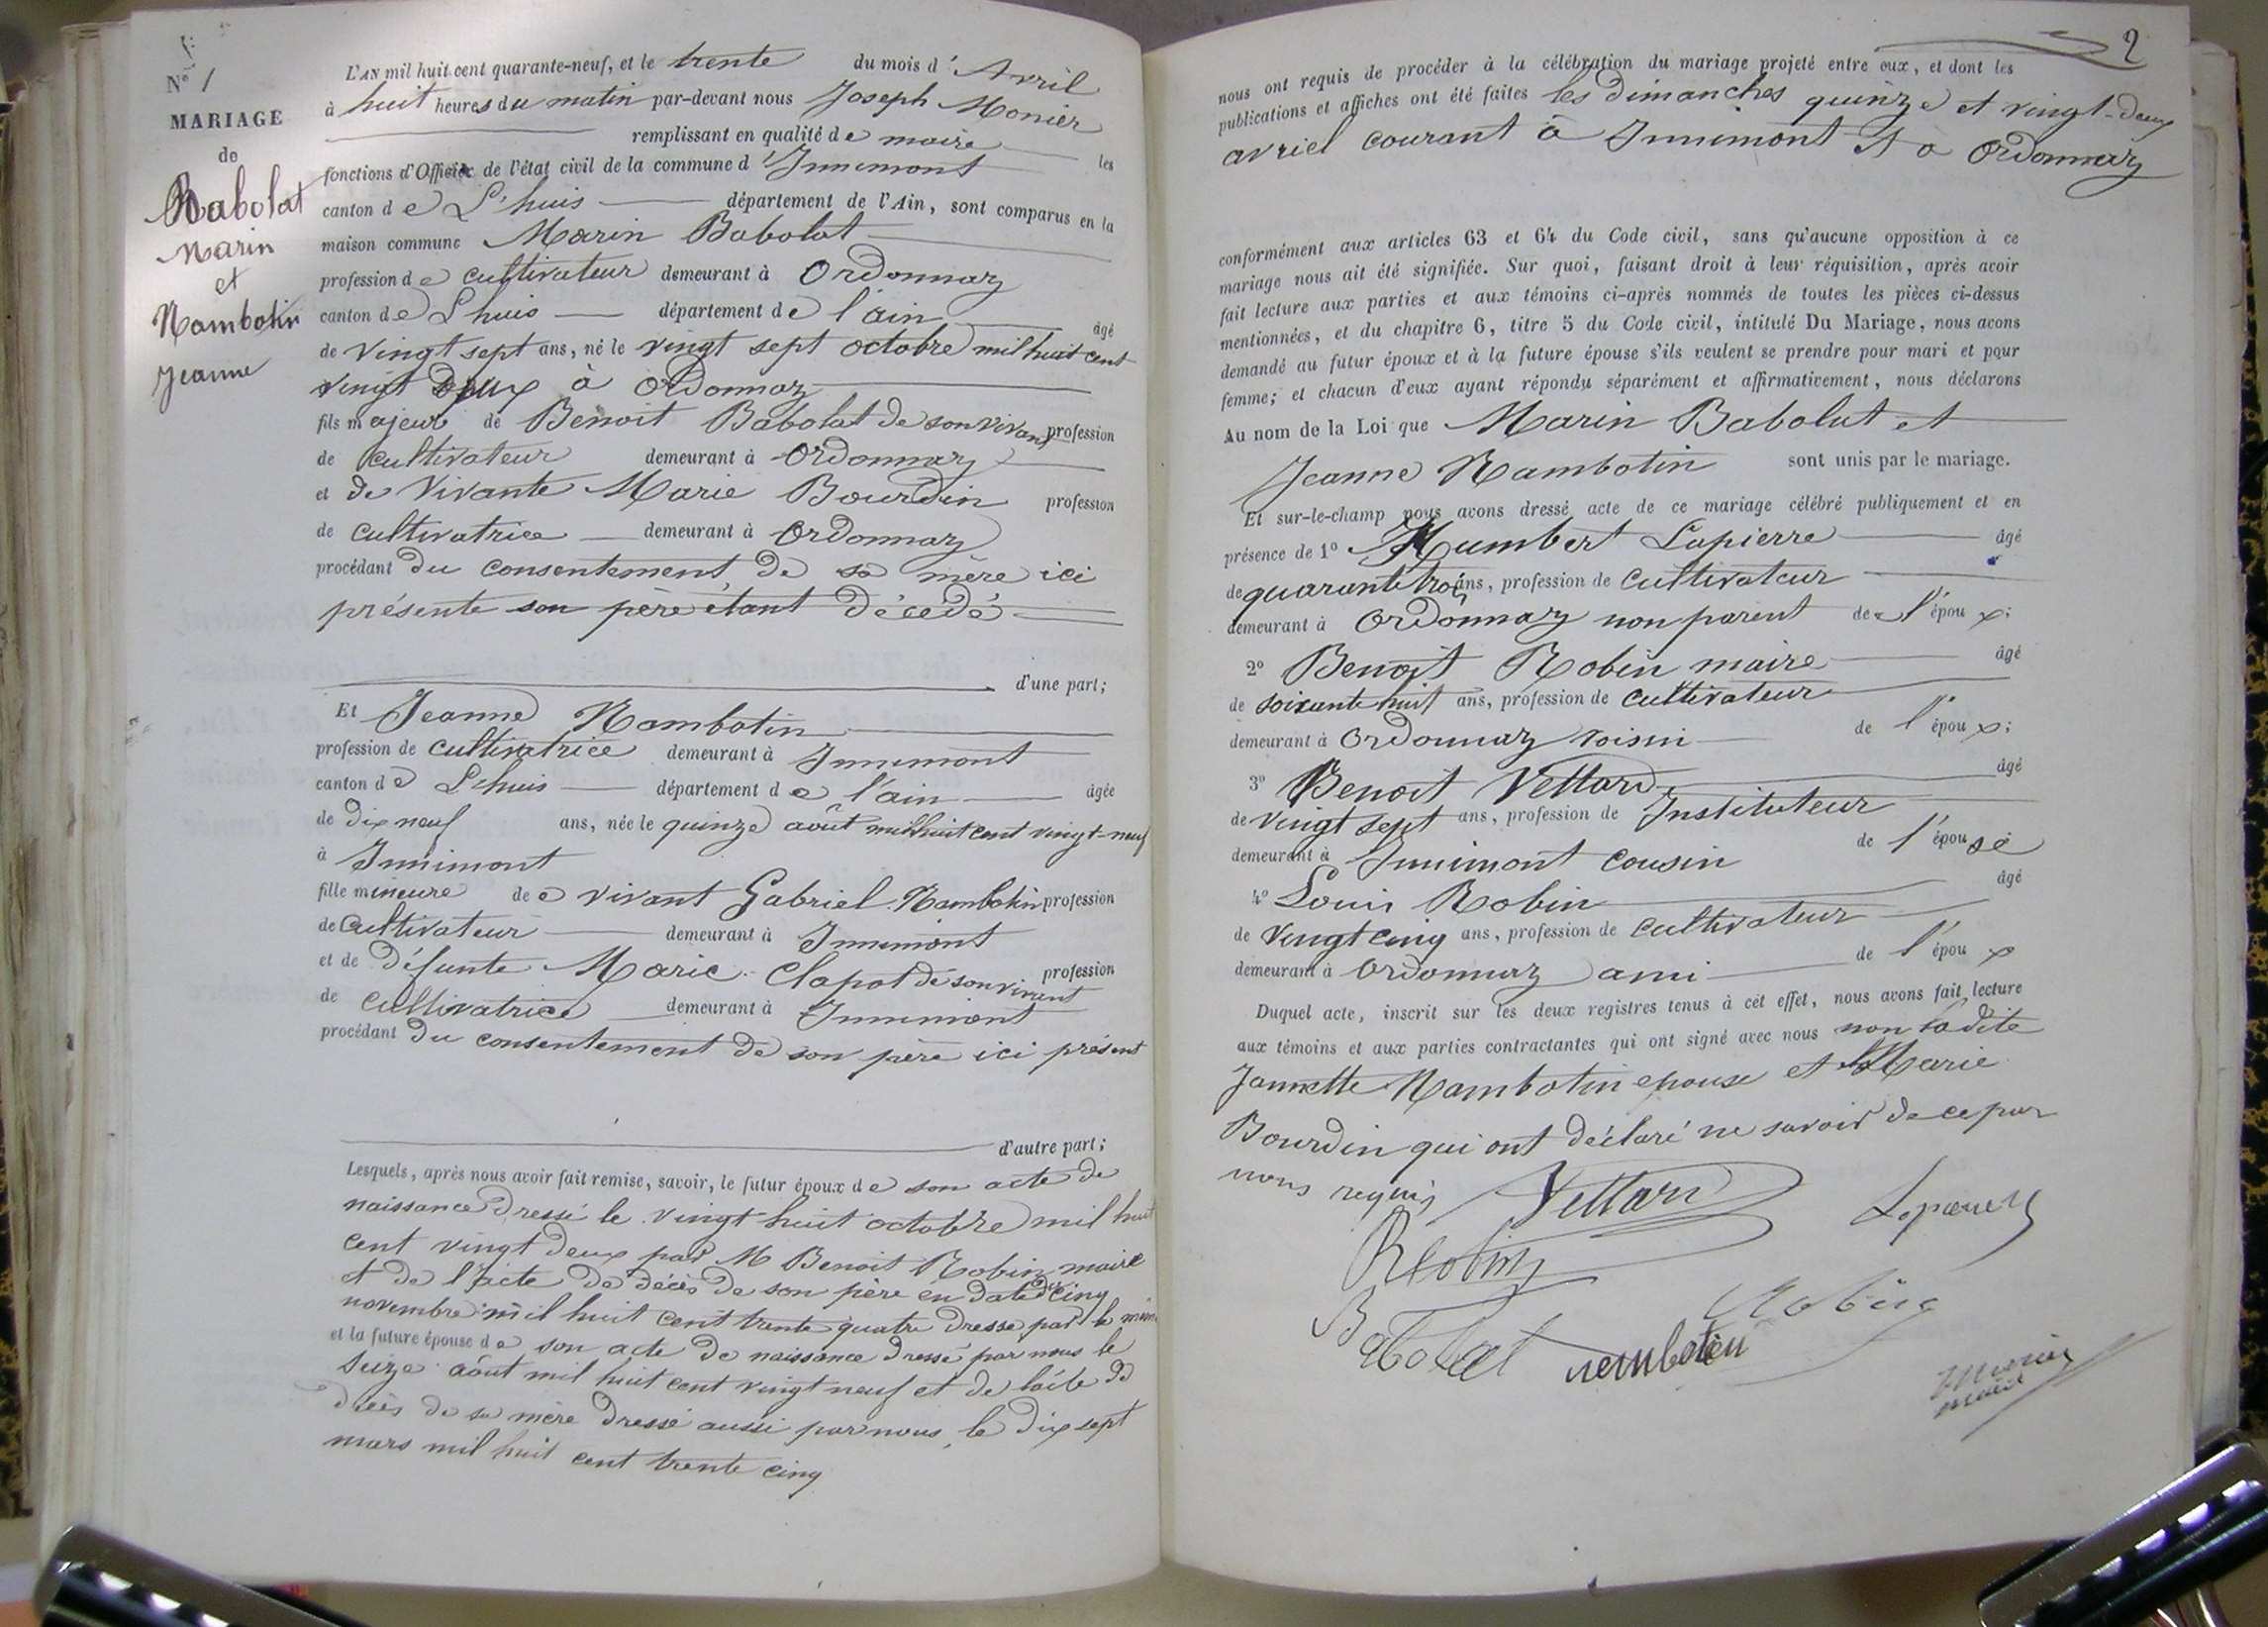 N° 1
MARIAGE
de
Babolat
Marin
et
Rambotin
Jeanne
L'AN mil huit cent quarante-neuf, et le trente du mois d'Avril
à huit heures du matin par-devant nous Joseph Monier
remplissant en qualité de maire les
fonctions d'Officier de l'état civil de la commune d'Innimont
canton de L'huis département de l'Ain, sont comparus en la
maison commune Marin Babolat
profession de cultivateur demeurant à Ordonnaz
canton de Lhuis département de l'ain âgé
de vingt sept ans, né le vingt sept octobre mil huit cent
vingt deux à Ordonnaz
fils majeur de Benoit Babolat de son vivant profession
de cultivateur demeurant à Ordonnaz
et de vivante Marie Bourdin profession
de cultivatrice demeurant à Ordonnaz
procédant du consentement de sa mère ici
présente son père étant décedé
d'une part;
Et Jeanne Rambotin
profession de cultivatrice demeurant à Innimont
canton de L'huis département de l'ain âgée
de dix neuf ans, née le quinze août mil huit cent vingt-neuf
à Innimont
fille mineure de vivant Gabriel Rambotin profession
de cultivateur demeurant à Innimont
et de défunte Marie Clapot de son vivant profession
de cultivatrice demeurant à Innimont
procédant du consentement de son père ici présent
d'autre part;
Lesquels, après nous avoir fait remise, savoir, le futur époux de son acte de
naissance dressé le vingt huit octobre mil huit
cent vingt deux par M Benoit Robin maire
et de l'acte de décès de son père en date du cinq
novembre mil huit cent trente quatre dressé par le même
et la future épouse de son acte de naissance dressé par nous le
seize août mil huit cent vingt neuf et de l'acte de
décès de sa mère dressé aussi par nous le dix sept
mars mil huit cent trente cinq
2
nous ont requis de procéder à la célébration du mariage projeté entre eux, et dont les
publications et affiches ont été faites les dimanches quinze et vingt-deux
avriel courant à Innimont et a Ordonnaz
conformément aux articles 63 et 64 du Code civil, sans qu'aucune opposition à ce
mariage nous ait été signifiée. Sur quoi, faisant droit à leur réquisition, après avoir
fait lecture aux parties et aux témoins ci-après nommés de toutes les pièces ci-dessus
mentionnées, et du chapitre 6, titre 5 du Code civil, intitulé Du Mariage, nous avons
demandé au futur époux et à la future épouse s'ils veulent se prendre pour mari et pour
femme; et chacun d'eux ayant répondu séparément et affirmativement, nous déclarons
Au nom de la Loi que Marin Babolat et
Jeanne Rambotin sont unis par le mariage.
Et sur-le-champ nous avons dressé acte de ce mariage célébré publiquement et en
présence de 1° Humbert Lapierre âgé
de quarante trois ans, profession de cultivateur
demeurant à Ordonnaz non parent de l'époux;
2° Benoit Robin maire âgé
de soixante huit ans, profession de cultivateur
demeurant à Ordonnaz voisin de l'époux;
3° Benoit Vettard âgé
de vingt sept ans, profession de Instituteur
demeurant à Innimont cousin de l'épouse
4° Louis Robin âgé
de vingt cinq ans, profession de cultivateur
demeurant à Ordonnaz ami de l'époux
Duquel acte, inscrit sur les deux registres tenus à cet effet, nous avons fait lecture
aux témoins et aux parties contractantes qui ont signé avec nous non ladite
Jannette Rambotin epouse et Marie
Bourdin qui ont déclaré ne savoir de ce par
nous requis
Vettard
Robin
Babolat
rembotin
Robin
maire